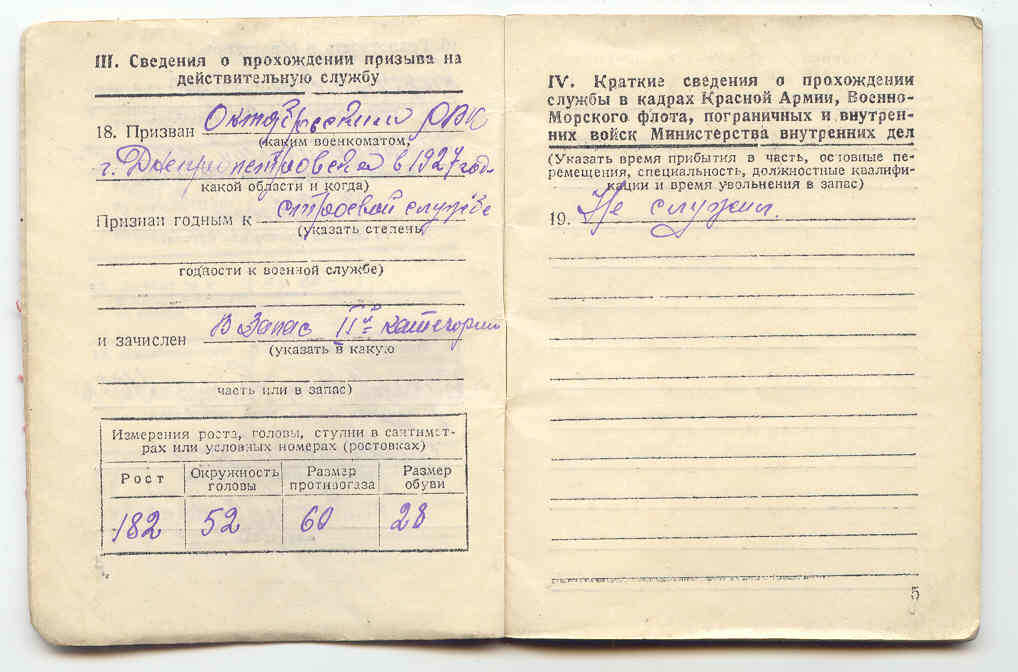 III. Сведения о прохождении призыва на
действительную службу
18. Призван Октябрьским РВК
(каким военкоматом,
г. Днепропетровска в 1927 год.
какой области и когда)
Признан годным к строевой службе
(указать степень
годности к военной службе)
и зачислен в запас II й категории
(указать в какую
часть или в запас)
Измерения роста, головы, ступни в сантимет-
рах или условных номерах (ростовках)
Рост Окружность головы Размер противогаза Размер обуви
182 52 60 28
IV. Краткие сведения о прохождении
службы в кадрах Красной Армии, Военно-
Морского флота, пограничных и внутрен-
них войск Министерства внутренних дел
(Указать время прибытия в часть, основные пе-
ремещения, специальность, должностные квалифи-
кации и время увольнения в запас)
19. Не служил.
5